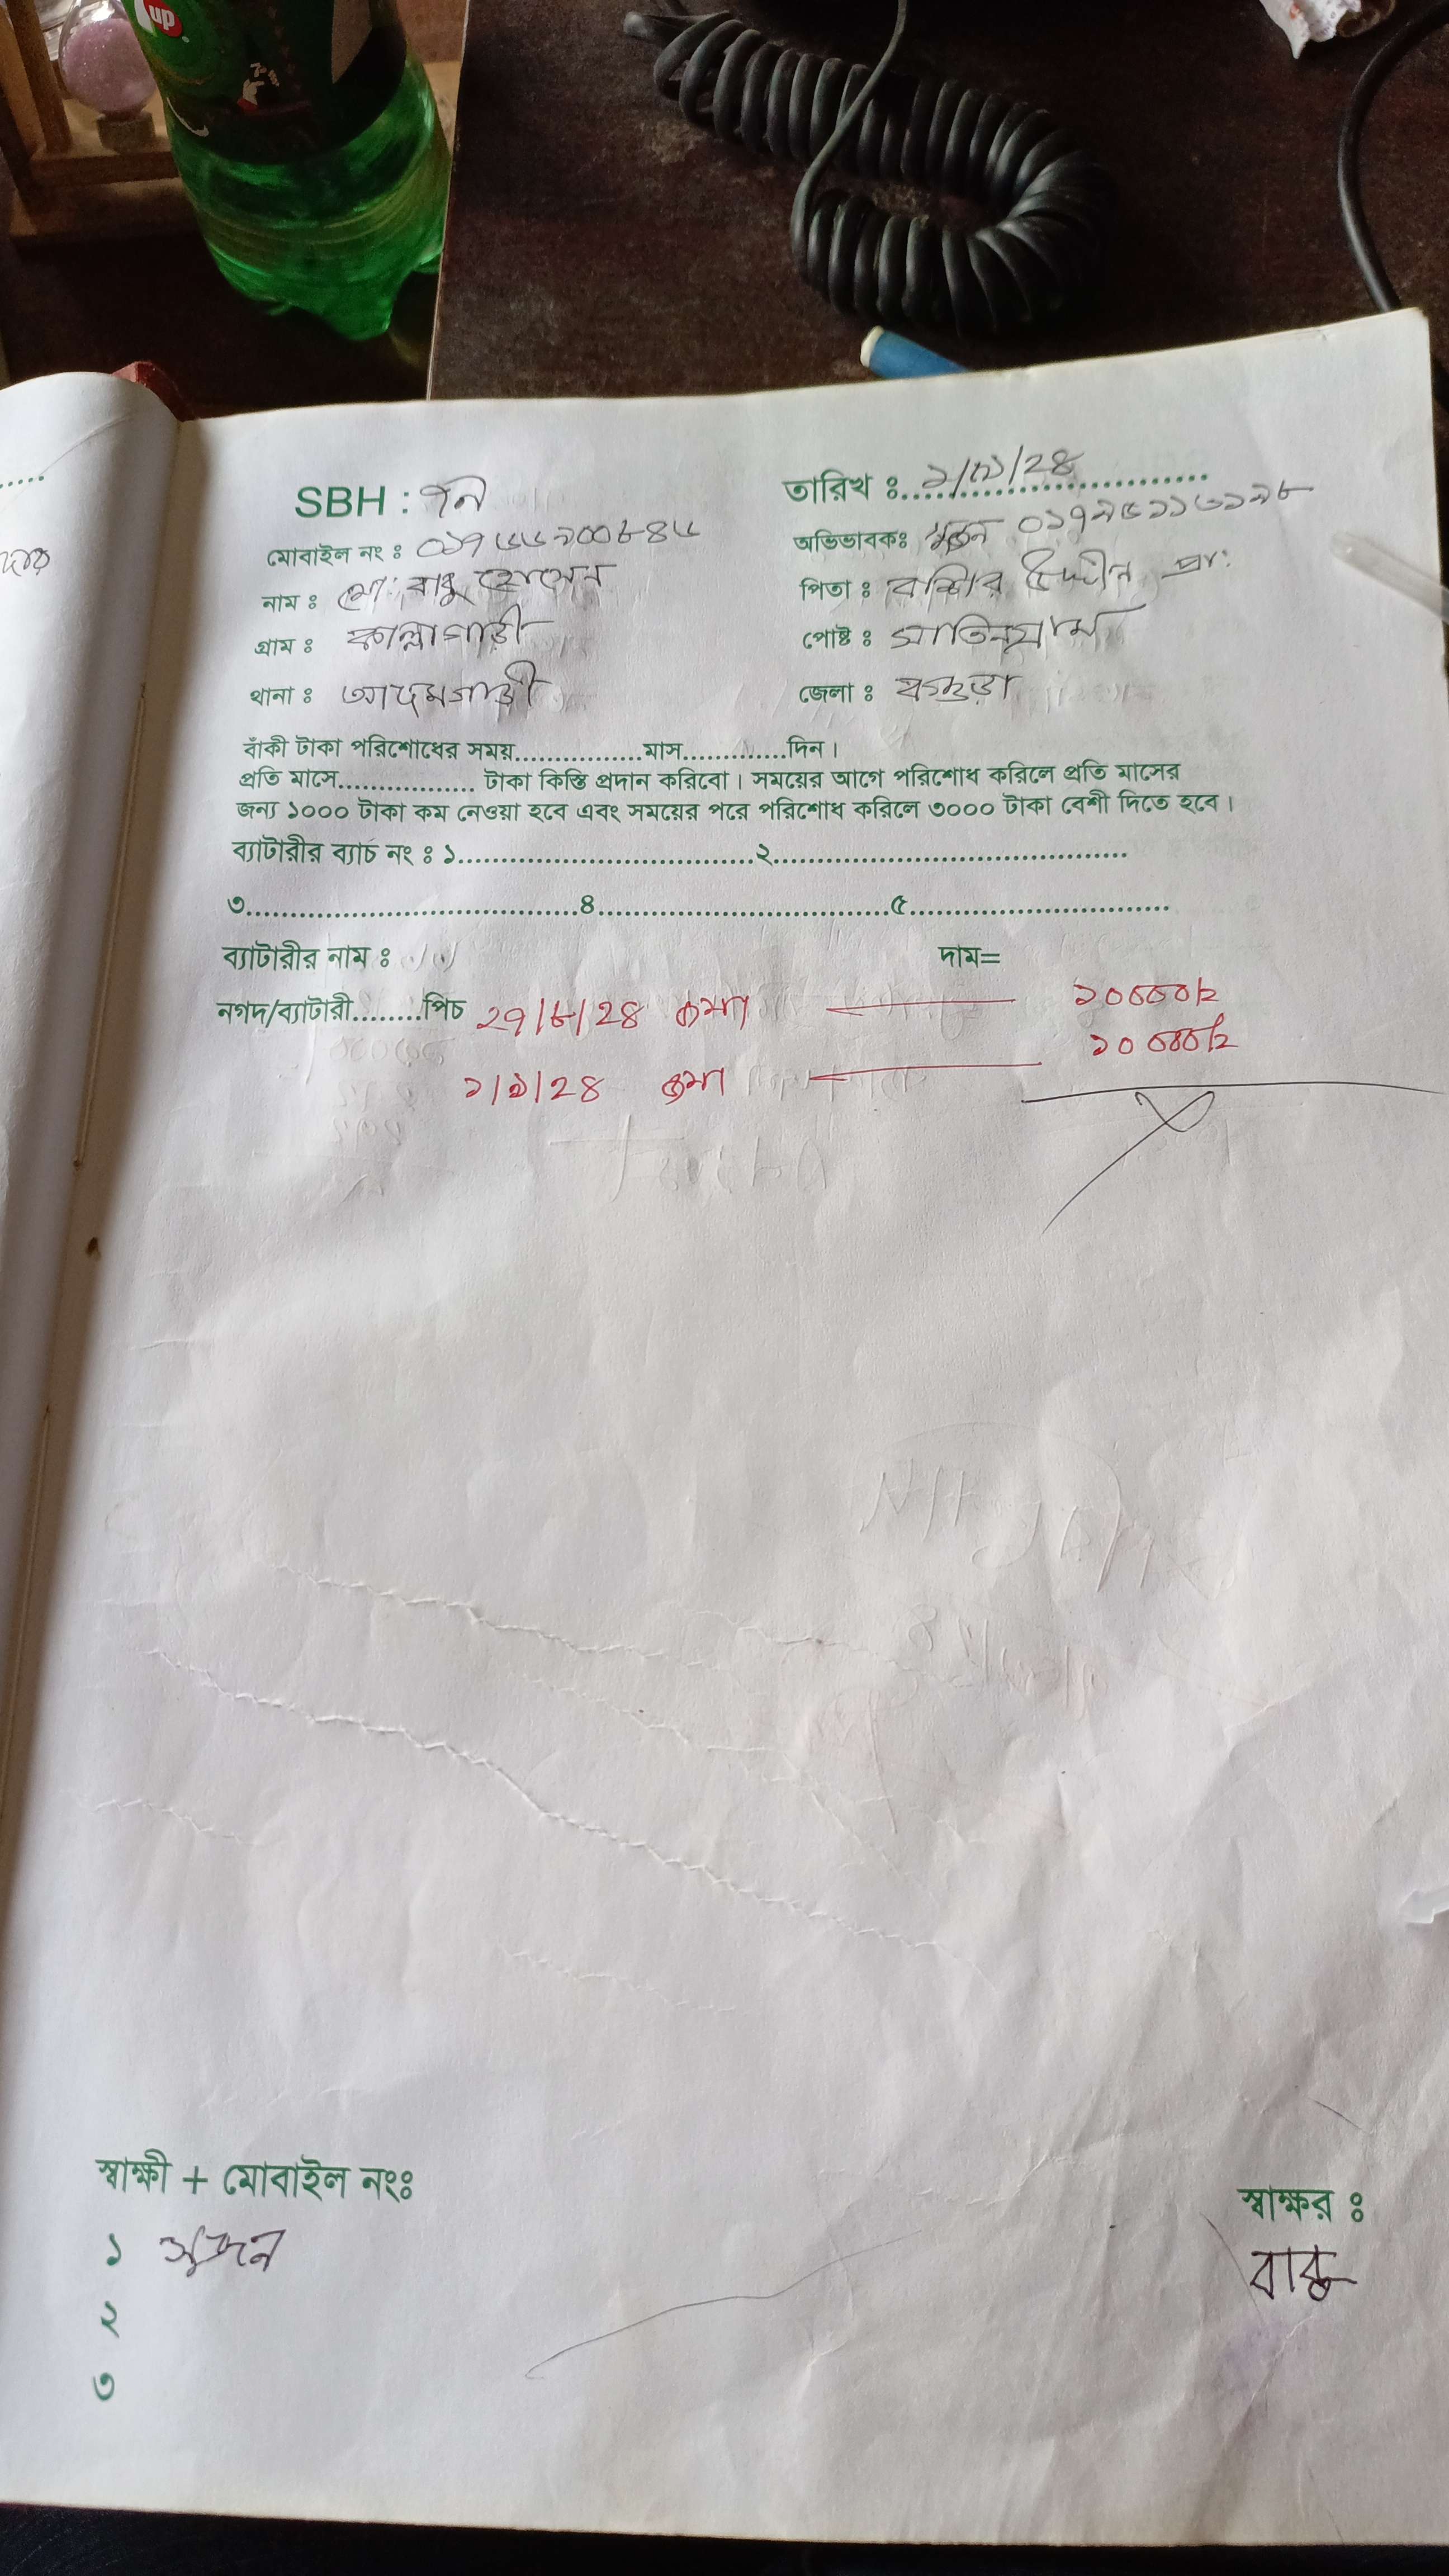 up
SBH : গনি
তারিখ ঃ ১/৩১/২৪
মোবাইল নং ঃ ০১৭৬৬১০০৮৪৬
অভিভাবকঃ ০১৭২৫১১৩১২৮
নাম ঃ মো: বাবু হোসেন
পিতা ঃ বছির উদ্দীন প্রা:
গ্রাম ঃ কাল্লাগাড়ী
পোষ্ট ঃ সাতিনগ্রাম
থানা ঃ আদমদাড়ী
জেলা ঃ বগুড়া
বাঁকী টাকা পরিশোধের সময়................মাস.............দিন।
প্রতি মাসে................. টাকা কিস্তি প্রদান করিবো। সময়ের আগে পরিশোধ করিলে প্রতি মাসের
জন্য ১০০০ টাকা কম নেওয়া হবে এবং সময়ের পরে পরিশোধ করিলে ৩০০০ টাকা বেশী দিতে হবে।
ব্যাটারীর ব্যাচ নং ঃ ১.....................................২............................................
৩.........................................৪....................................৫................................
ব্যাটারীর নাম ঃ
দাম=
নগদ/ব্যাটারী........পিচ ২৭/৮/২৪ জমা ১০০০০/=
১/৯/২৪ জমা ১০০০০/=
স্বাক্ষী + মোবাইল নংঃ
স্বাক্ষর ঃ
১ সুজন
বাবু
২
৩